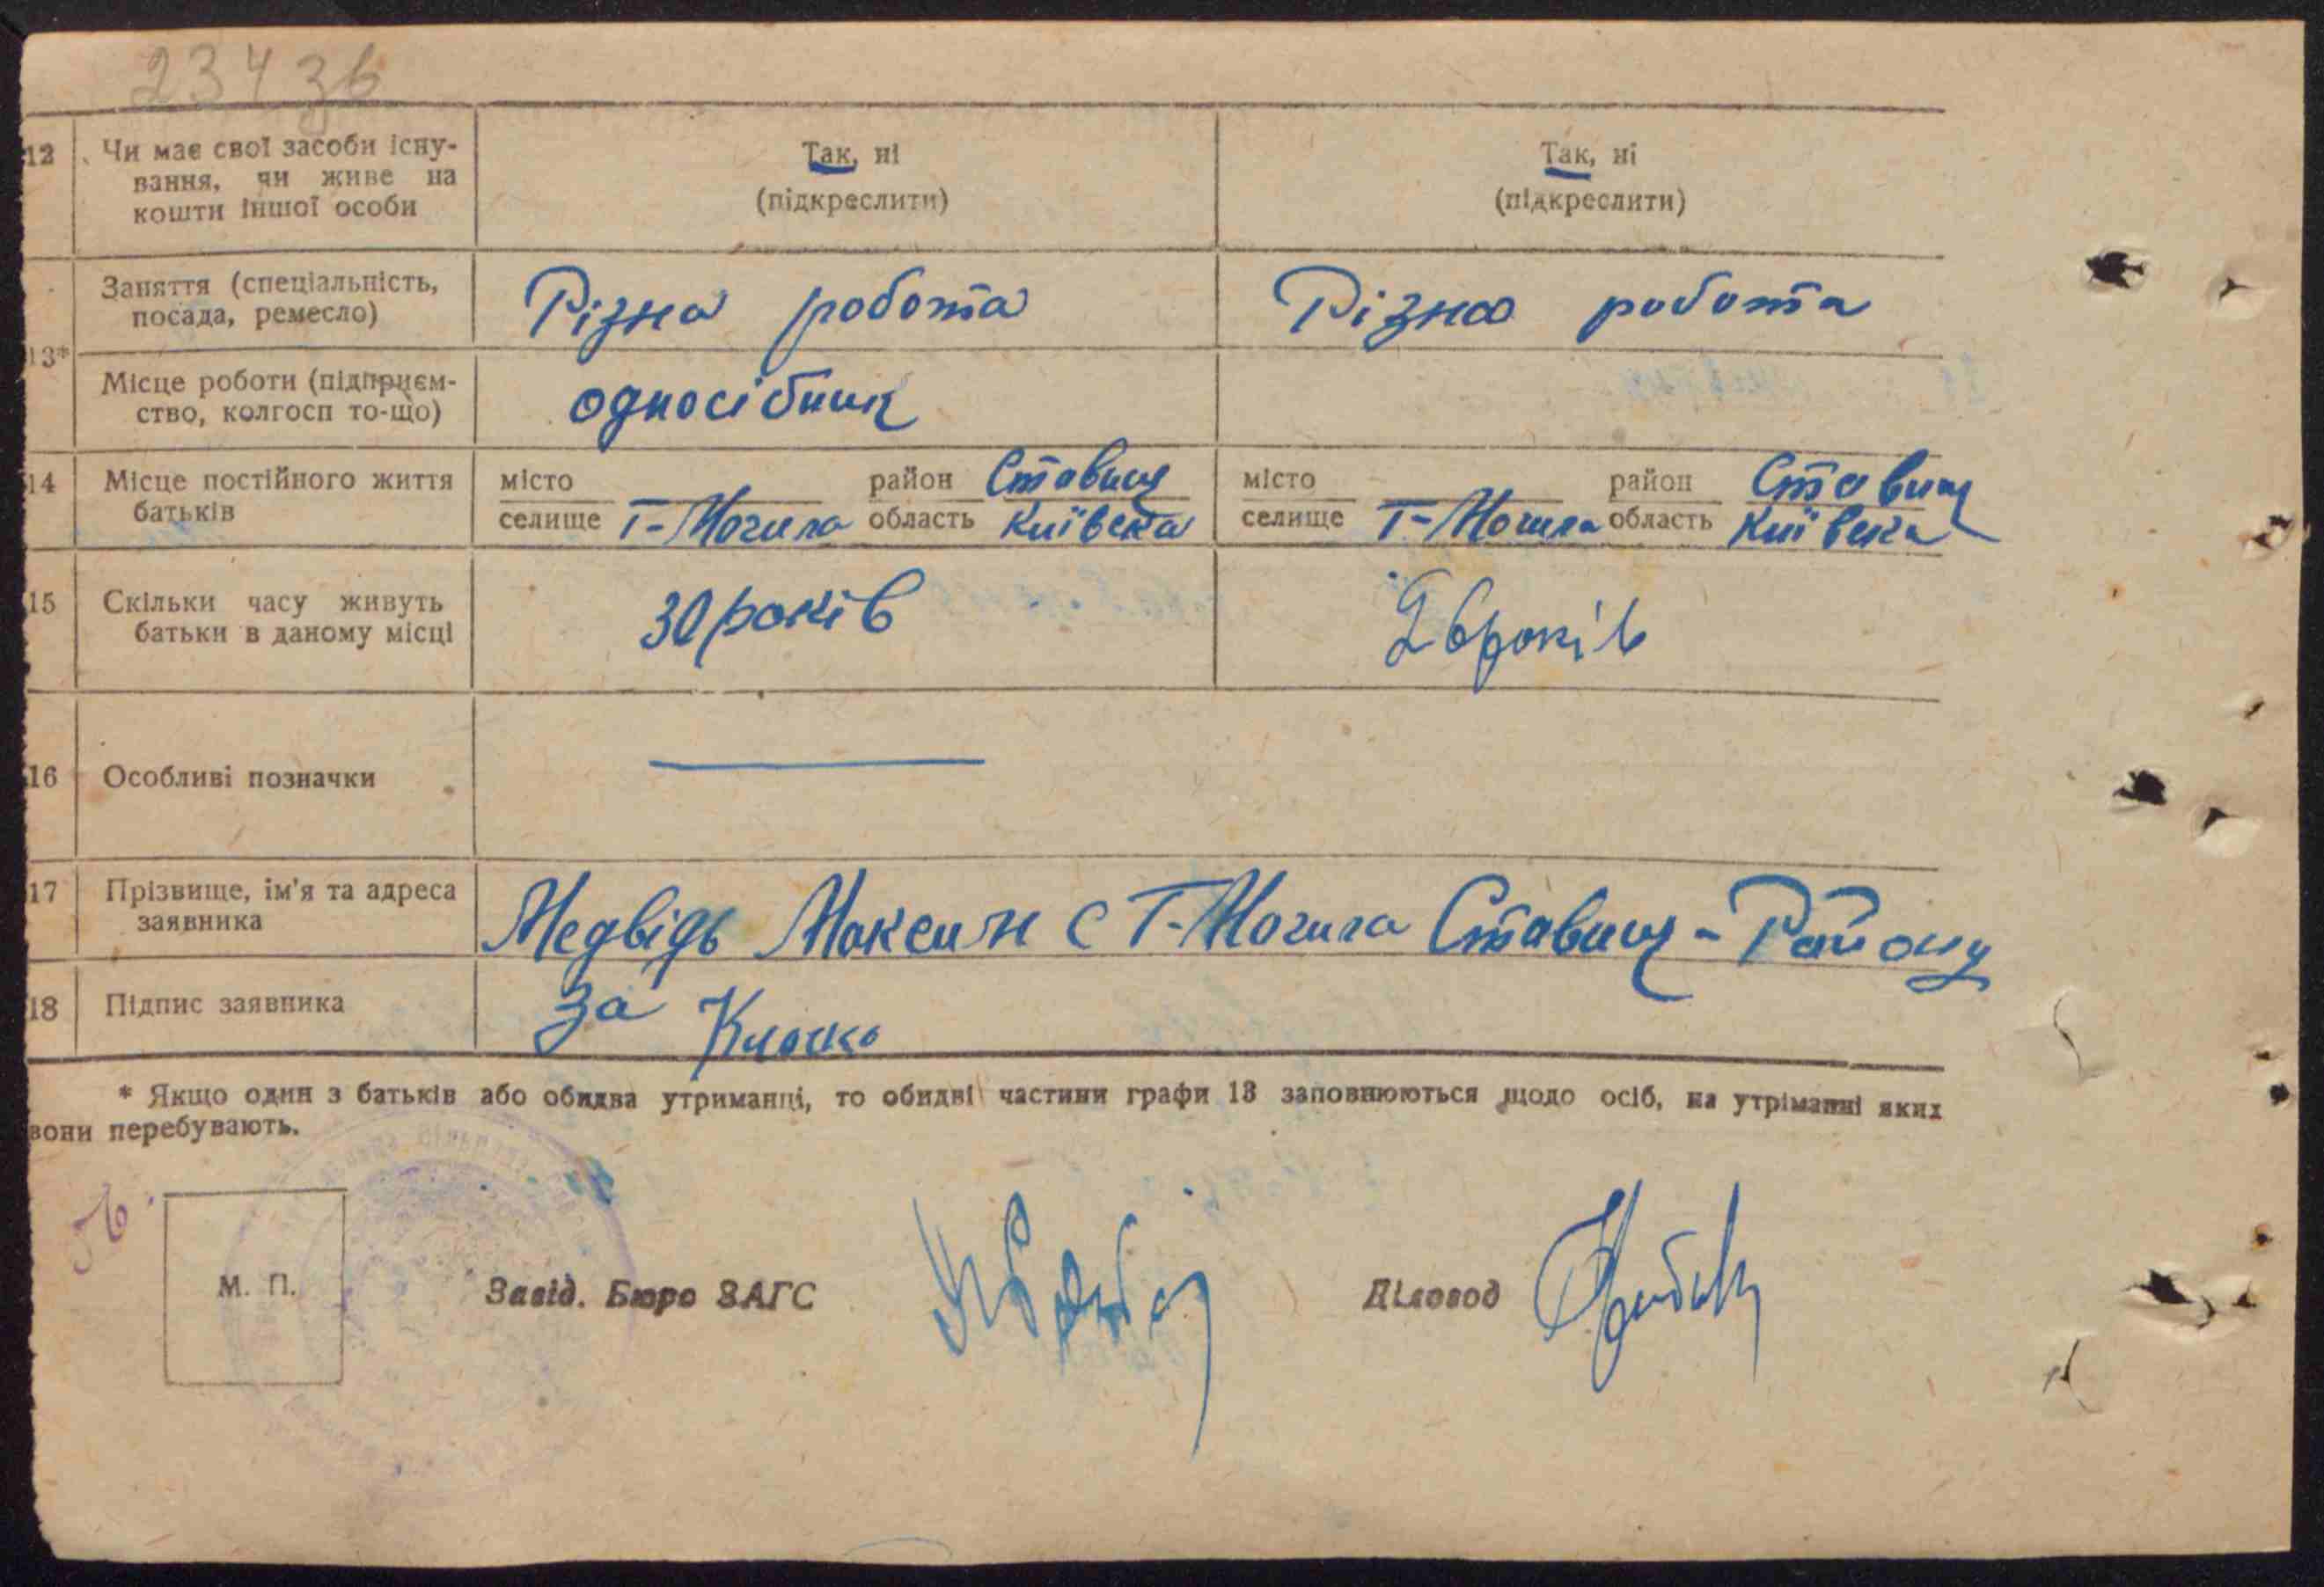 23436
12 Чи має свої засоби існу- Так, ні Так, ні
вання, чи живе на
кошти іншої особи (підкреслити) (підкреслити)
Заняття (спеціальність, Різна робота Різна робота
посада, ремесло)
13*
Місце роботи (підприєм- односібник
ство, колгосп то-що)
14 Місце постійного життя місто район Ставищ місто район Ставищ
батьків селище Т-Могила область Київська селище Т-Могила область Київська
15 Скільки часу живуть 30 років 26 років
батьки в даному місці
16 Особливі позначки
17 Прізвище, ім'я та адреса Медвідь Максим с Т-Могила Ставищ-Району
заявника
18 Підпис заявника За Клочко
* Якщо один з батьків або обидва утриманці, то обидві частини графи 13 заповнюються щодо осіб, на утріманні яких
вони перебувають.
М. П. Завід. Бюро ЗАГС Діловод